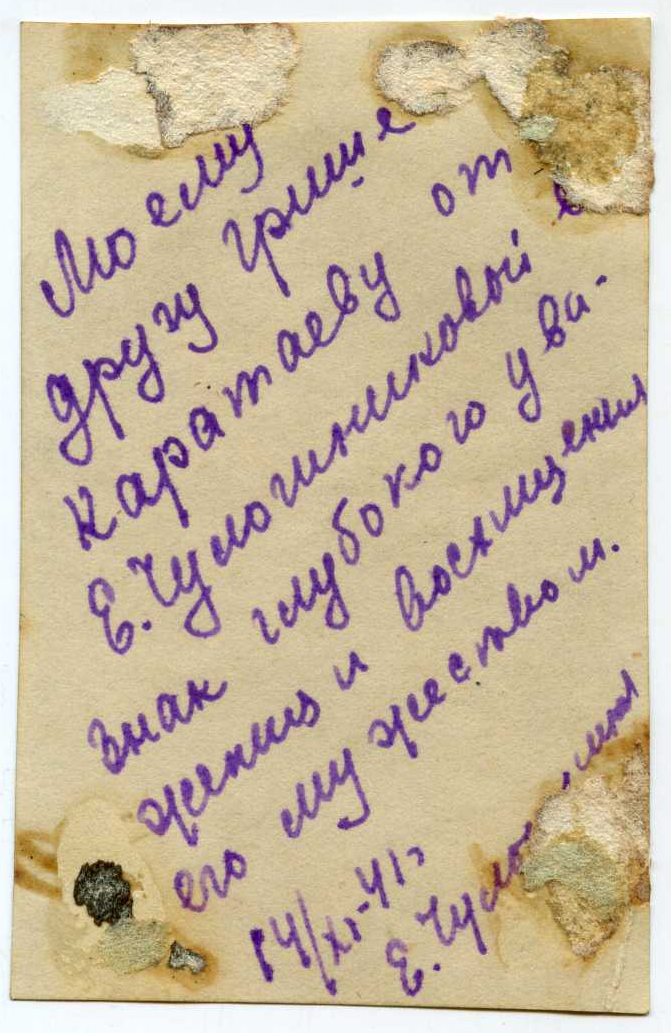 Моему
другу Грише
Каратаеву от
Е. Чулошниковой в
знак глубокого ува-
жения и восхищения
его мужеством.
14/XI-41г